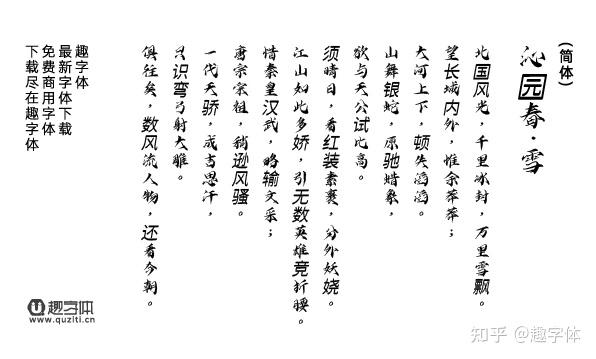 (简体)
沁园春·雪
北国风光，千里冰封，万里雪飘。
望长城内外，惟余莽莽；
大河上下，顿失滔滔。
山舞银蛇，原驰蜡象，
欲与天公试比高。
须晴日，看红装素裹，分外妖娆。
江山如此多娇，引无数英雄竞折腰。
惜秦皇汉武，略输文采；
唐宗宋祖，稍逊风骚。
一代天骄，成吉思汗，
只识弯弓射大雕。
俱往矣，数风流人物，还看今朝。
趣字体
最新字体下载
免费商用字体
下载尽在趣字体
趣字体
www.quziti.cn
知乎 @趣字体